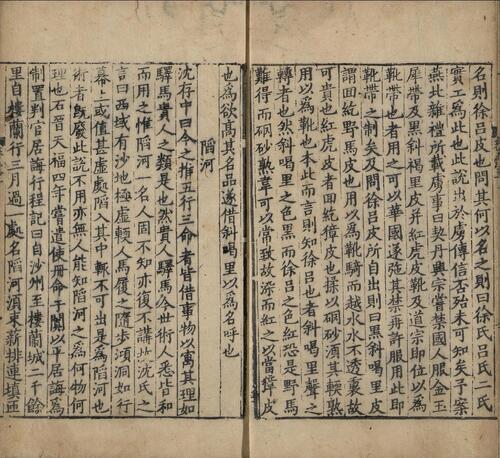 名則曰徐呂皮也問其何以名之則曰徐氏呂氏二氏
實工為此也此說出於虜傳信否殆未可知矣子案
燕北雜禮所載虜事曰契丹興宗嘗禁國人服金玉
犀帶及黑斜褐里皮并紅虎皮靴及道宗即位以為
靴帶也者用之可以華國遂弛其禁再許服用此即
靴帶之制矣及問徐呂皮所自出則曰黑斜喝里皮
謂回紇野馬皮也用以為靴騎而越水水不透裏故
可貴也紅虎皮者回紇獐皮也揉以硇砂須其輭熟
用以為靴也本此而言則知徐呂也者斜喝里聲之
轉者也然斜喝里之色黑而徐呂之色紅恐是野馬
難得而硇砂熟韋可以常致故染而紅之以當獐皮
也為欲高其名品遂借斜喝里以為名呼也
陷河
沈存中曰今之推五行三命者皆借事物以寓其理如
驛馬貴人之類是也然貴人驛馬今世術人悉皆和
而用之惟陷河一名人固不知亦復不講苦沈氏之
言曰西域有沙地極虛輭人馬履之隨步澒洞如行
幕上或值甚虛處陷入其中輙不可出是為陷河也
術者既廢此說不用亦無人能知陷河之為何物何
理也石晉天福四年嘗遣使冊命于闐以平居誨為
制置判官居誨行程記曰自沙州至樓蘭城二千餘
里自樓蘭行三月過一處名陷河須束薪排連填匝